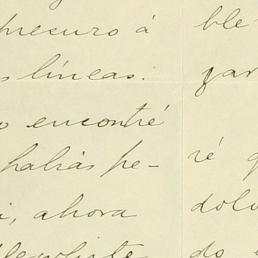 presuro á
s líneas.
encontré
habías pe-
i, ahora
ble
par
ré
dolo
do